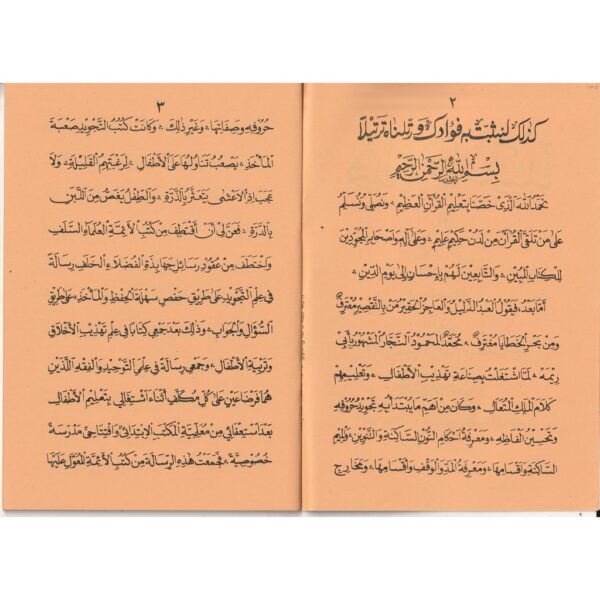 ٢
كذلك لنثبت به فؤادك ورتلناه ترتيلا
بسم الله الرحمن الرحيم
نحمد الله الذي خصنا بتعليم القرآن العظيم، ونصلي ونسلم
على من تلقى القرآن من لدن حكيم عليم، وعلى آله وأصحابه المجودين
للكتاب المبين، والتابعين لهم بإحسان إلى يوم الدين،
أما بعد: فيقول العبد الذليل والعاجز الحقير من بالتقصير معترف
ومن بحر الخطايا مغترف، محمد المحمود النجار المشهور بأبي
ريمه، لما اشتغلت بصناعة تهذيب الأطفال، وتعليمهم
كلام الملك المتعال، وكان من أهم ما يبتدأ به تجويد حروفه
وتحسين ألفاظه، ومعرفة أحكام النون الساكنة والتنوين، والميم
الساكنة وأقسامها، ومعرفة المد والوقف وأقسامها، ومخارج
٣
حروفه وصفاتها، وغير ذلك، وكانت كتب التجويد صعبة
المأخذ، يصعب تناولها على الأطفال، لرغبتهم القليلة، ولا
عجب إذ الأعشى يتعثر بالذرة، والطفل يغص من اللبن
بالدرة، فعن لي أن أقتطف من كتب الأئمة العلماء السلف
وأختطف من عقود رسائل جهابذة الفضلاء الخلف رسالة
في علم التجويد على طريق حفص سهلة الحفظ والمأخذ، على طريق
السؤال والجواب، وذلك بعد جمعي كتابا في علم تهذيب الأخلاق
وتربية الأطفال، وجمعي رسالة في علمي التوحيد والفقه اللذين
هما فرضا عين على كل مكلف أثناء اشتغالي بتعليم الأطفال
بعد استعفائي من معلمية المكتب الابتدائي وافتتاحي مدرسة
خصوصية، فجمعت هذه الرسالة من كتب الأئمة المعول عليها